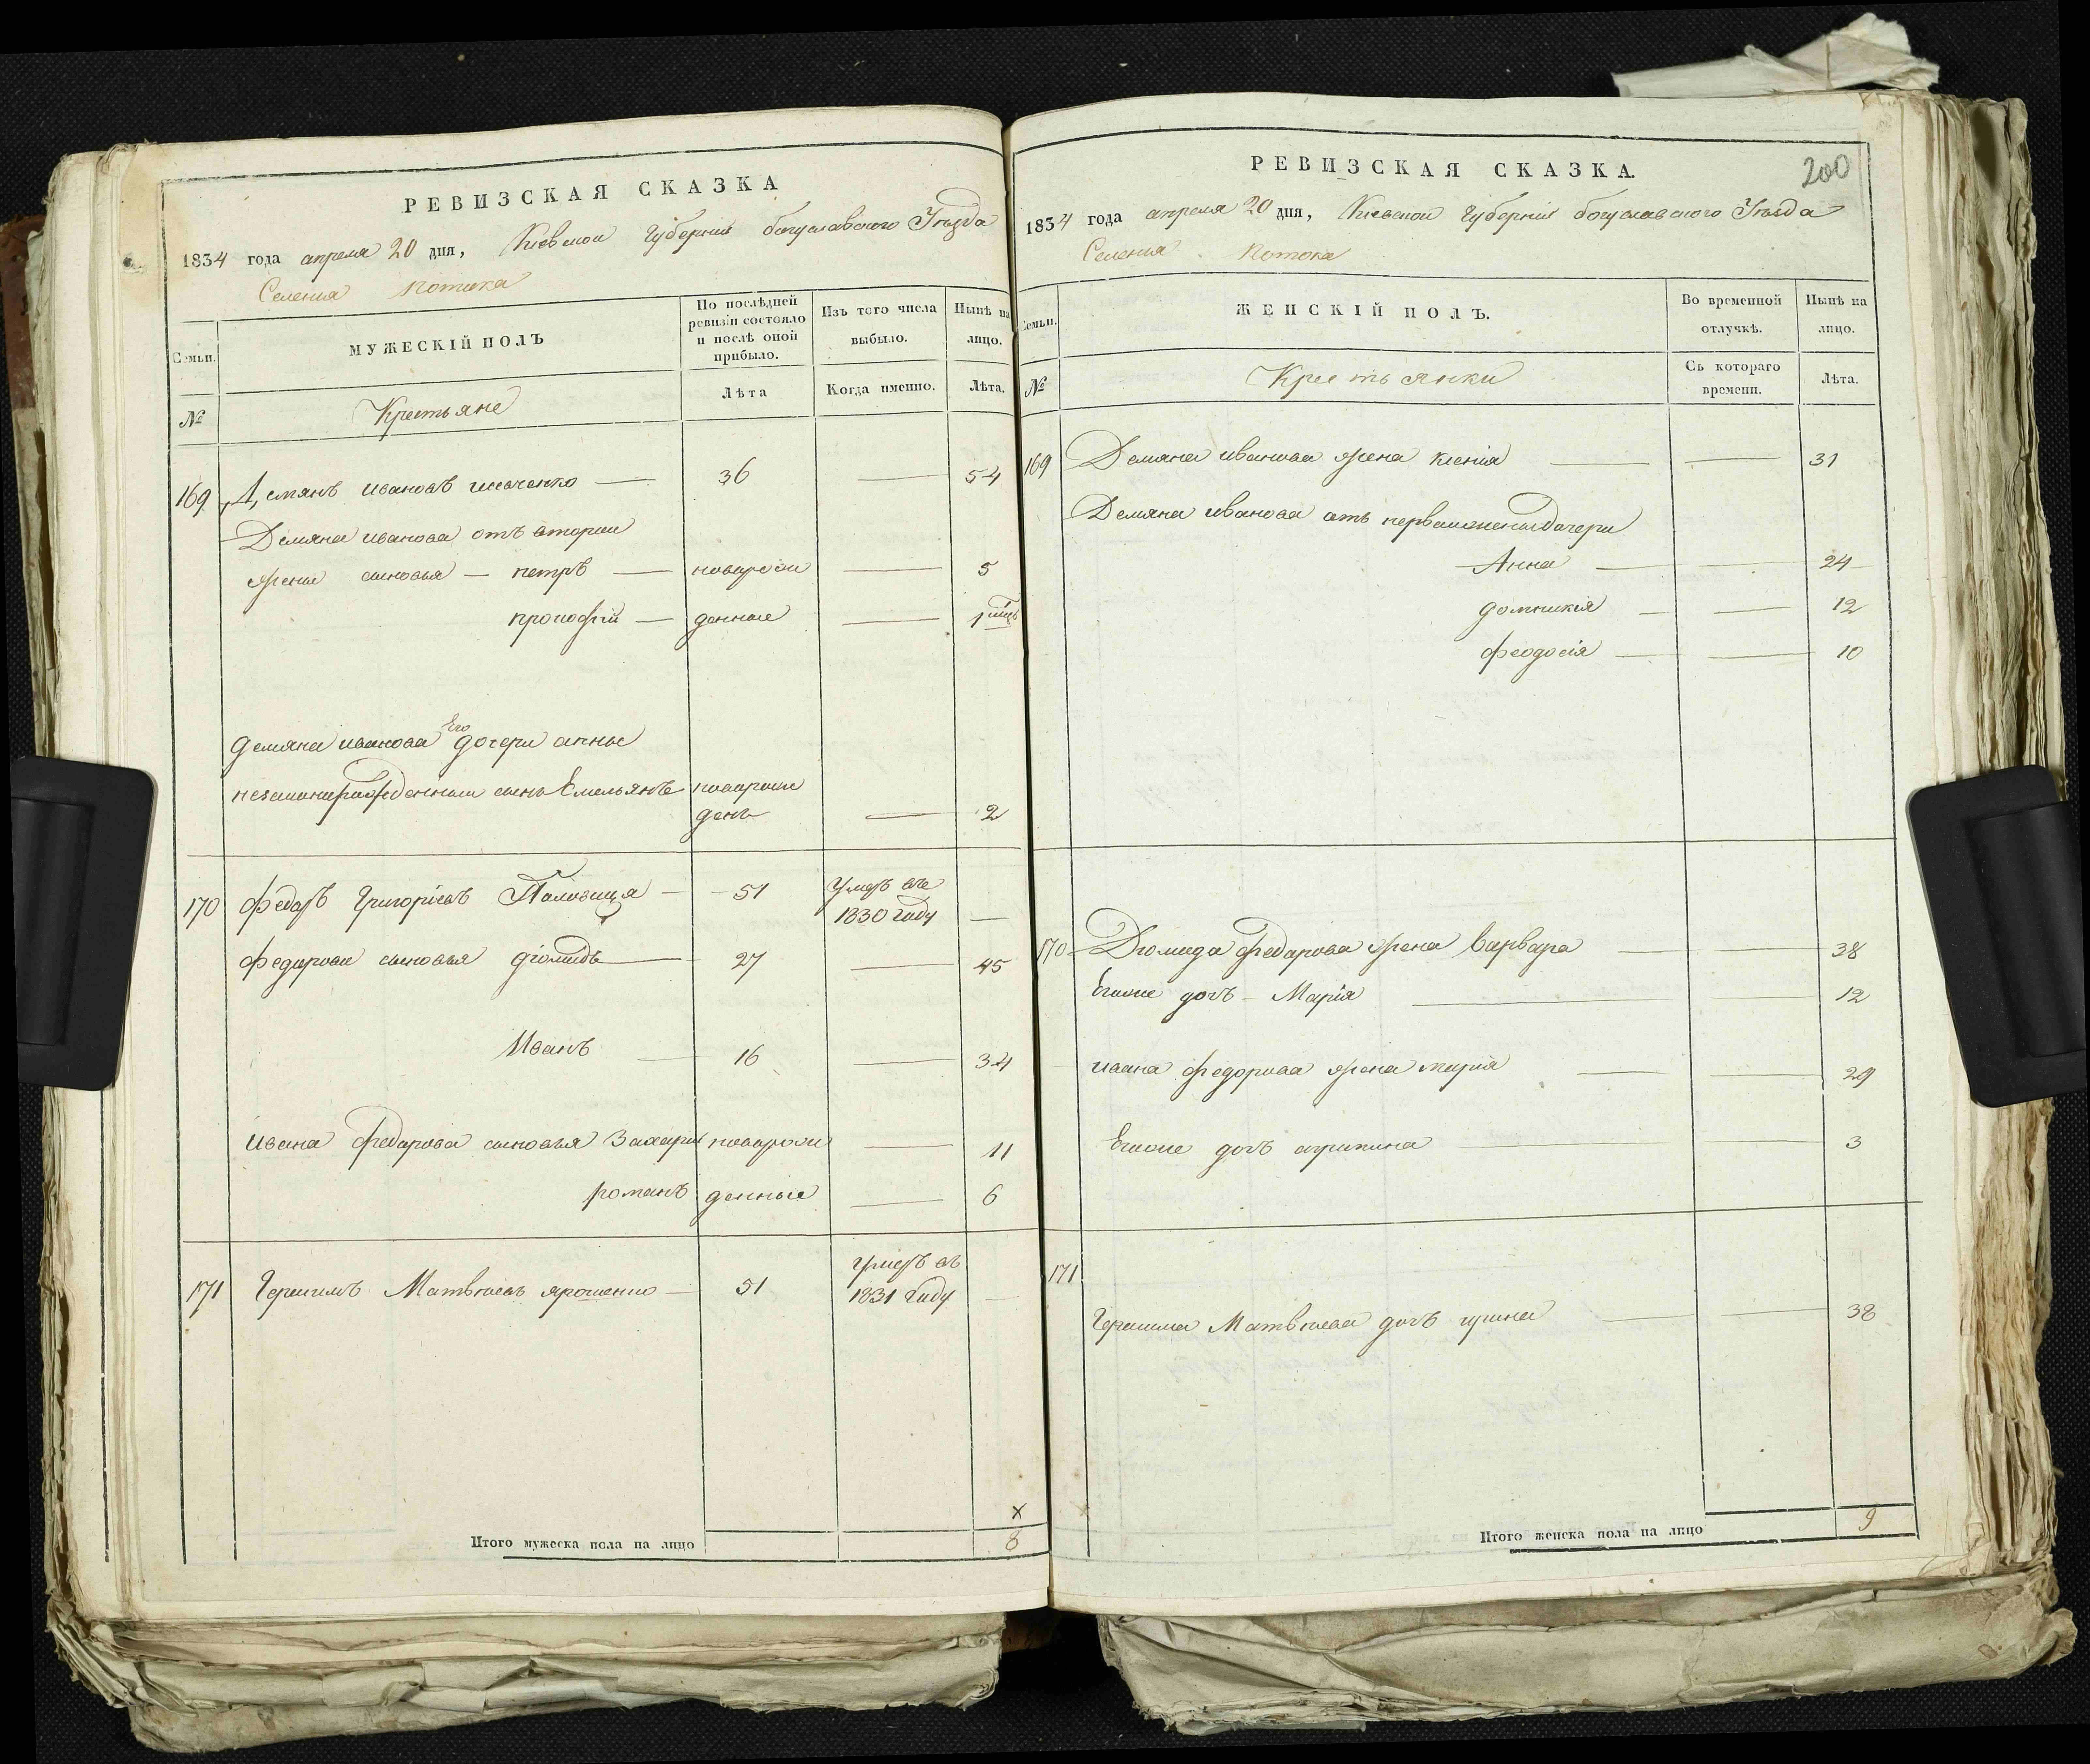 РЕВИЗСКАЯ СКАЗКА
1834 года апреля 20 дня, Киевской Губернии богуславского Уѣзда
Селения Потока
Семьи.
МУЖЕСКІЙ ПОЛЪ
По послѣдней ревизіи состояло и послѣ оной прибыло.
Изъ того числа выбыло.
Нынѣ на лицо.
№
Крестьяне
Лѣта
Когда именно.
Лѣта.
169 Демянъ Ивановъ 36 — 54
Демяна иванова отъ вторыи
жены сыновья — петръ — новорож 5
прокофій — денные 1 мцъ
Его
демяна иванова дочери анны
незаконнорожденный сынъ Емельянъ новорож
денъ — 2
170 Федоръ Григоріевъ — 51 Умеръ въ
1830 году —
Федоровы сыновья діомидъ — 27 — 45
Иванъ — 16 — 34
Ивана Федорова сыновья Захарій новорож — 11
романъ денные — 6
171 Герасимъ Матвѣевъ ярошенко — 51 умеръ въ
1831 году —
х
Итого мужеска пола на лицо 8
200
РЕВИЗСКАЯ СКАЗКА.
1834 года апреля 20 дня, Киевской Губернии богуславского Уѣзда
Селения Потока
Семьи.
ЖЕНСКІЙ ПОЛЪ.
Во временной отлучкѣ.
Нынѣ на лицо.
№
Крестьянки
Съ котораго времени.
Лѣта.
169 Демяна иванова жена ксения — — 31
Демяна иванова отъ первои жены дочери
Анна — — 24
домникія — — 12
феодосія — — 10
170 Диомида Федорова жена варвара — — 38
Егоже дочь — Марія — 12
ивана федорова жена марія — — 29
Егоже дочь агрипина — — 3
171
Герасима Матвѣева дочь ирина — — 38
Итого женска пола на лицо 9